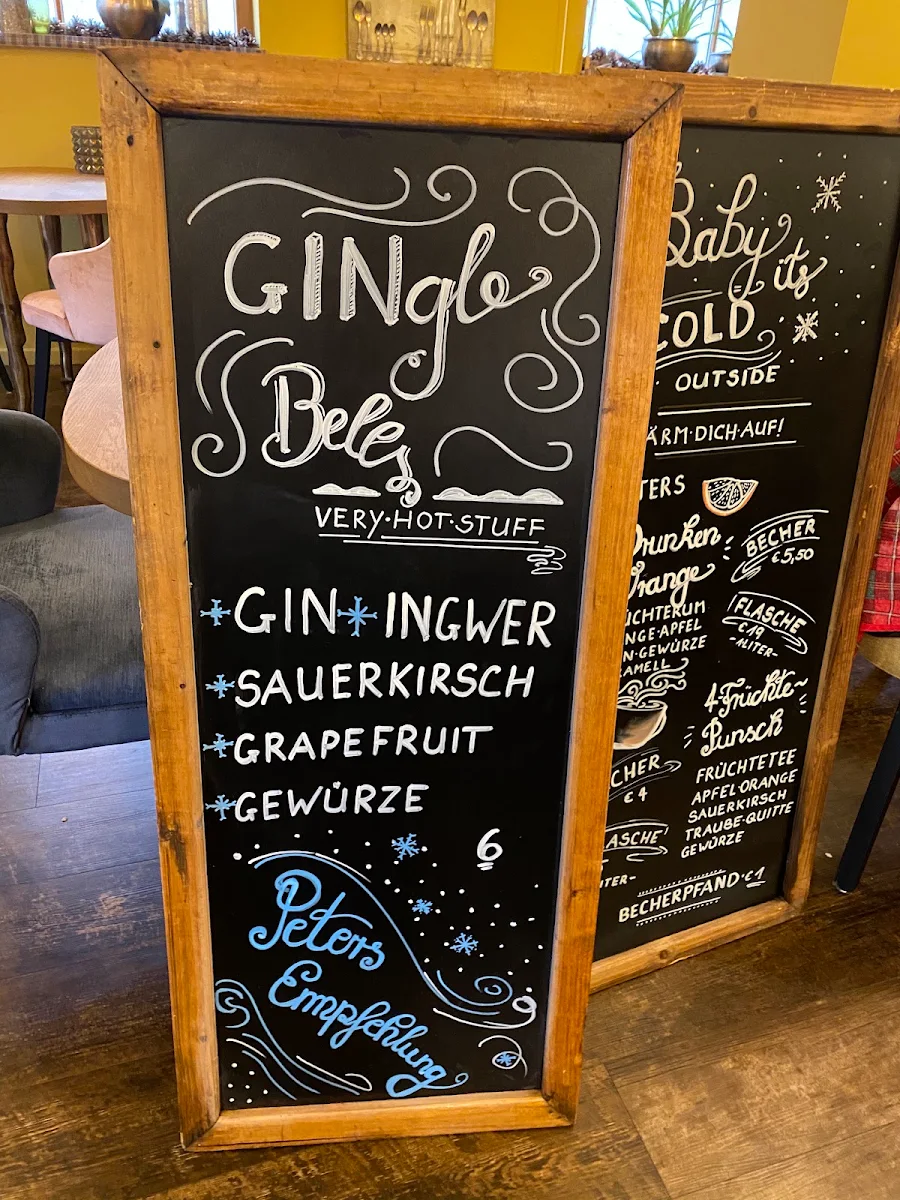 GINgle
Bells
VERY·HOT·STUFF
GIN * INGWER
* SAUERKIRSCH
* GRAPEFRUIT
* GEWÜRZE
6
Peters
Empfehlung
Baby
its
COLD
OUTSIDE
ÄRM·DICH·AUF!
TERS
Drunken
Orange
ÜCHTERUM
NGE·APFEL
N·GEWÜRZE
AMELL
BECHER
€5,50
FLASCHE
€19
-1LITER-
CHER
€4
ASCHE
ITER-
4-Früchte-
Punsch
FRÜCHTETEE
APFEL·ORANGE
SAUERKIRSCH
TRAUBE·QUITTE
GEWÜRZE
BECHERPFAND·€1